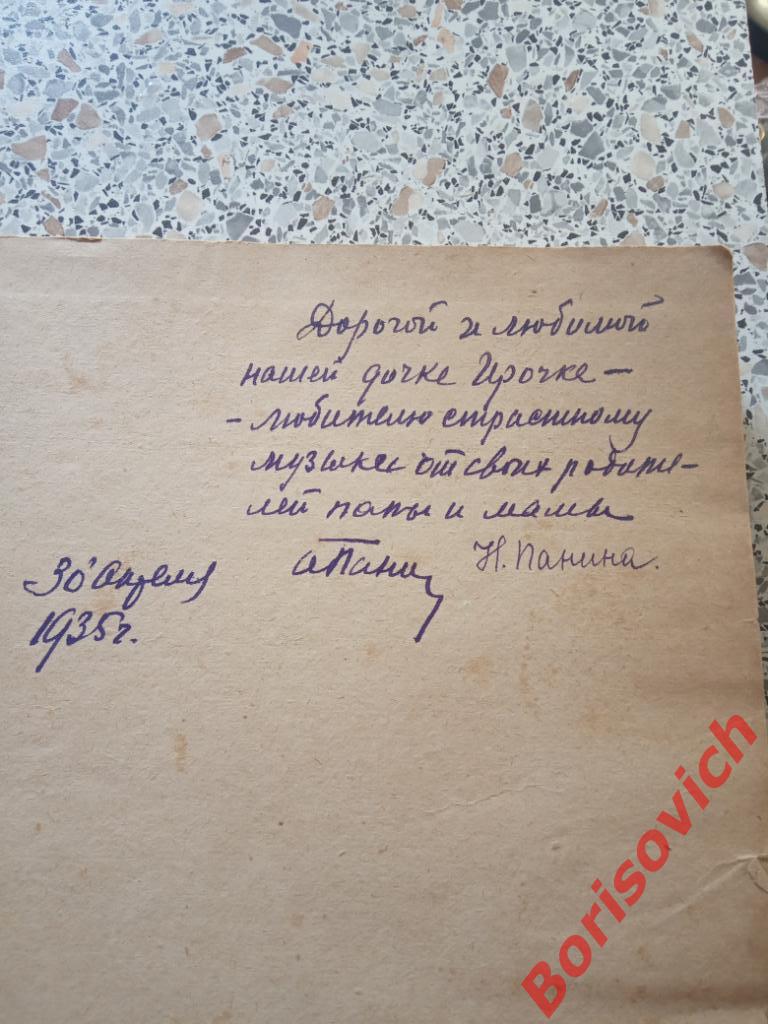 Дорогой и любимой
нашей дочке Ирочке —
- любителю страстному
музыке от своих родите-
лей папы и мамы
АПанин Н. Панина.
30 Апреля
1935 г.
Borisovich